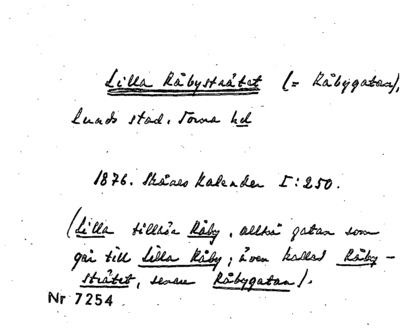 Lilla Råbystråtet (= Råbygatan),
Lunds stad. Torna hd
1876. Skånes Kalender I:250.
(Lilla tillhör Råby, alltså gatan som
går till Lilla Råby; även kallad Råby-
stråtet, senare Råbygatan).
Nr 7254